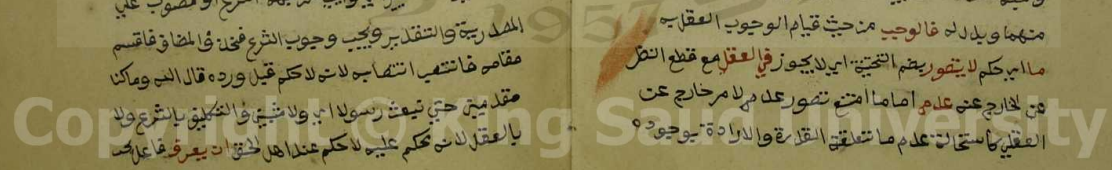 منهما ويدل له فالوجب من حيث قيام الوجوب العقلي به
ما اي حكم لا يتصور بضم التحتية اي لا يجوز في العقل مع قطع النظر
عن لخارج عنه عدمه اما ما امتنع تصور عدمه لا مر خارج عن
العقل كاستحالة عدم ما تعلقة القدرة والارادة بوجوده
المصدرية والتقدير ويجب وجوب الشرع فحذف المضاف فاقيم
مقامه فانتصب انتصابه لانه لا حكم قبل وروده قال الله وما كنا
معذبين حتى نبعث رسولا اي ولا مثيبين والتخليق بالشرع ولا
بالعقل لانه تحكم عليه لا حكم عند اهل الحق ان يعرف فاعل
1957
Copyright © King Saud University